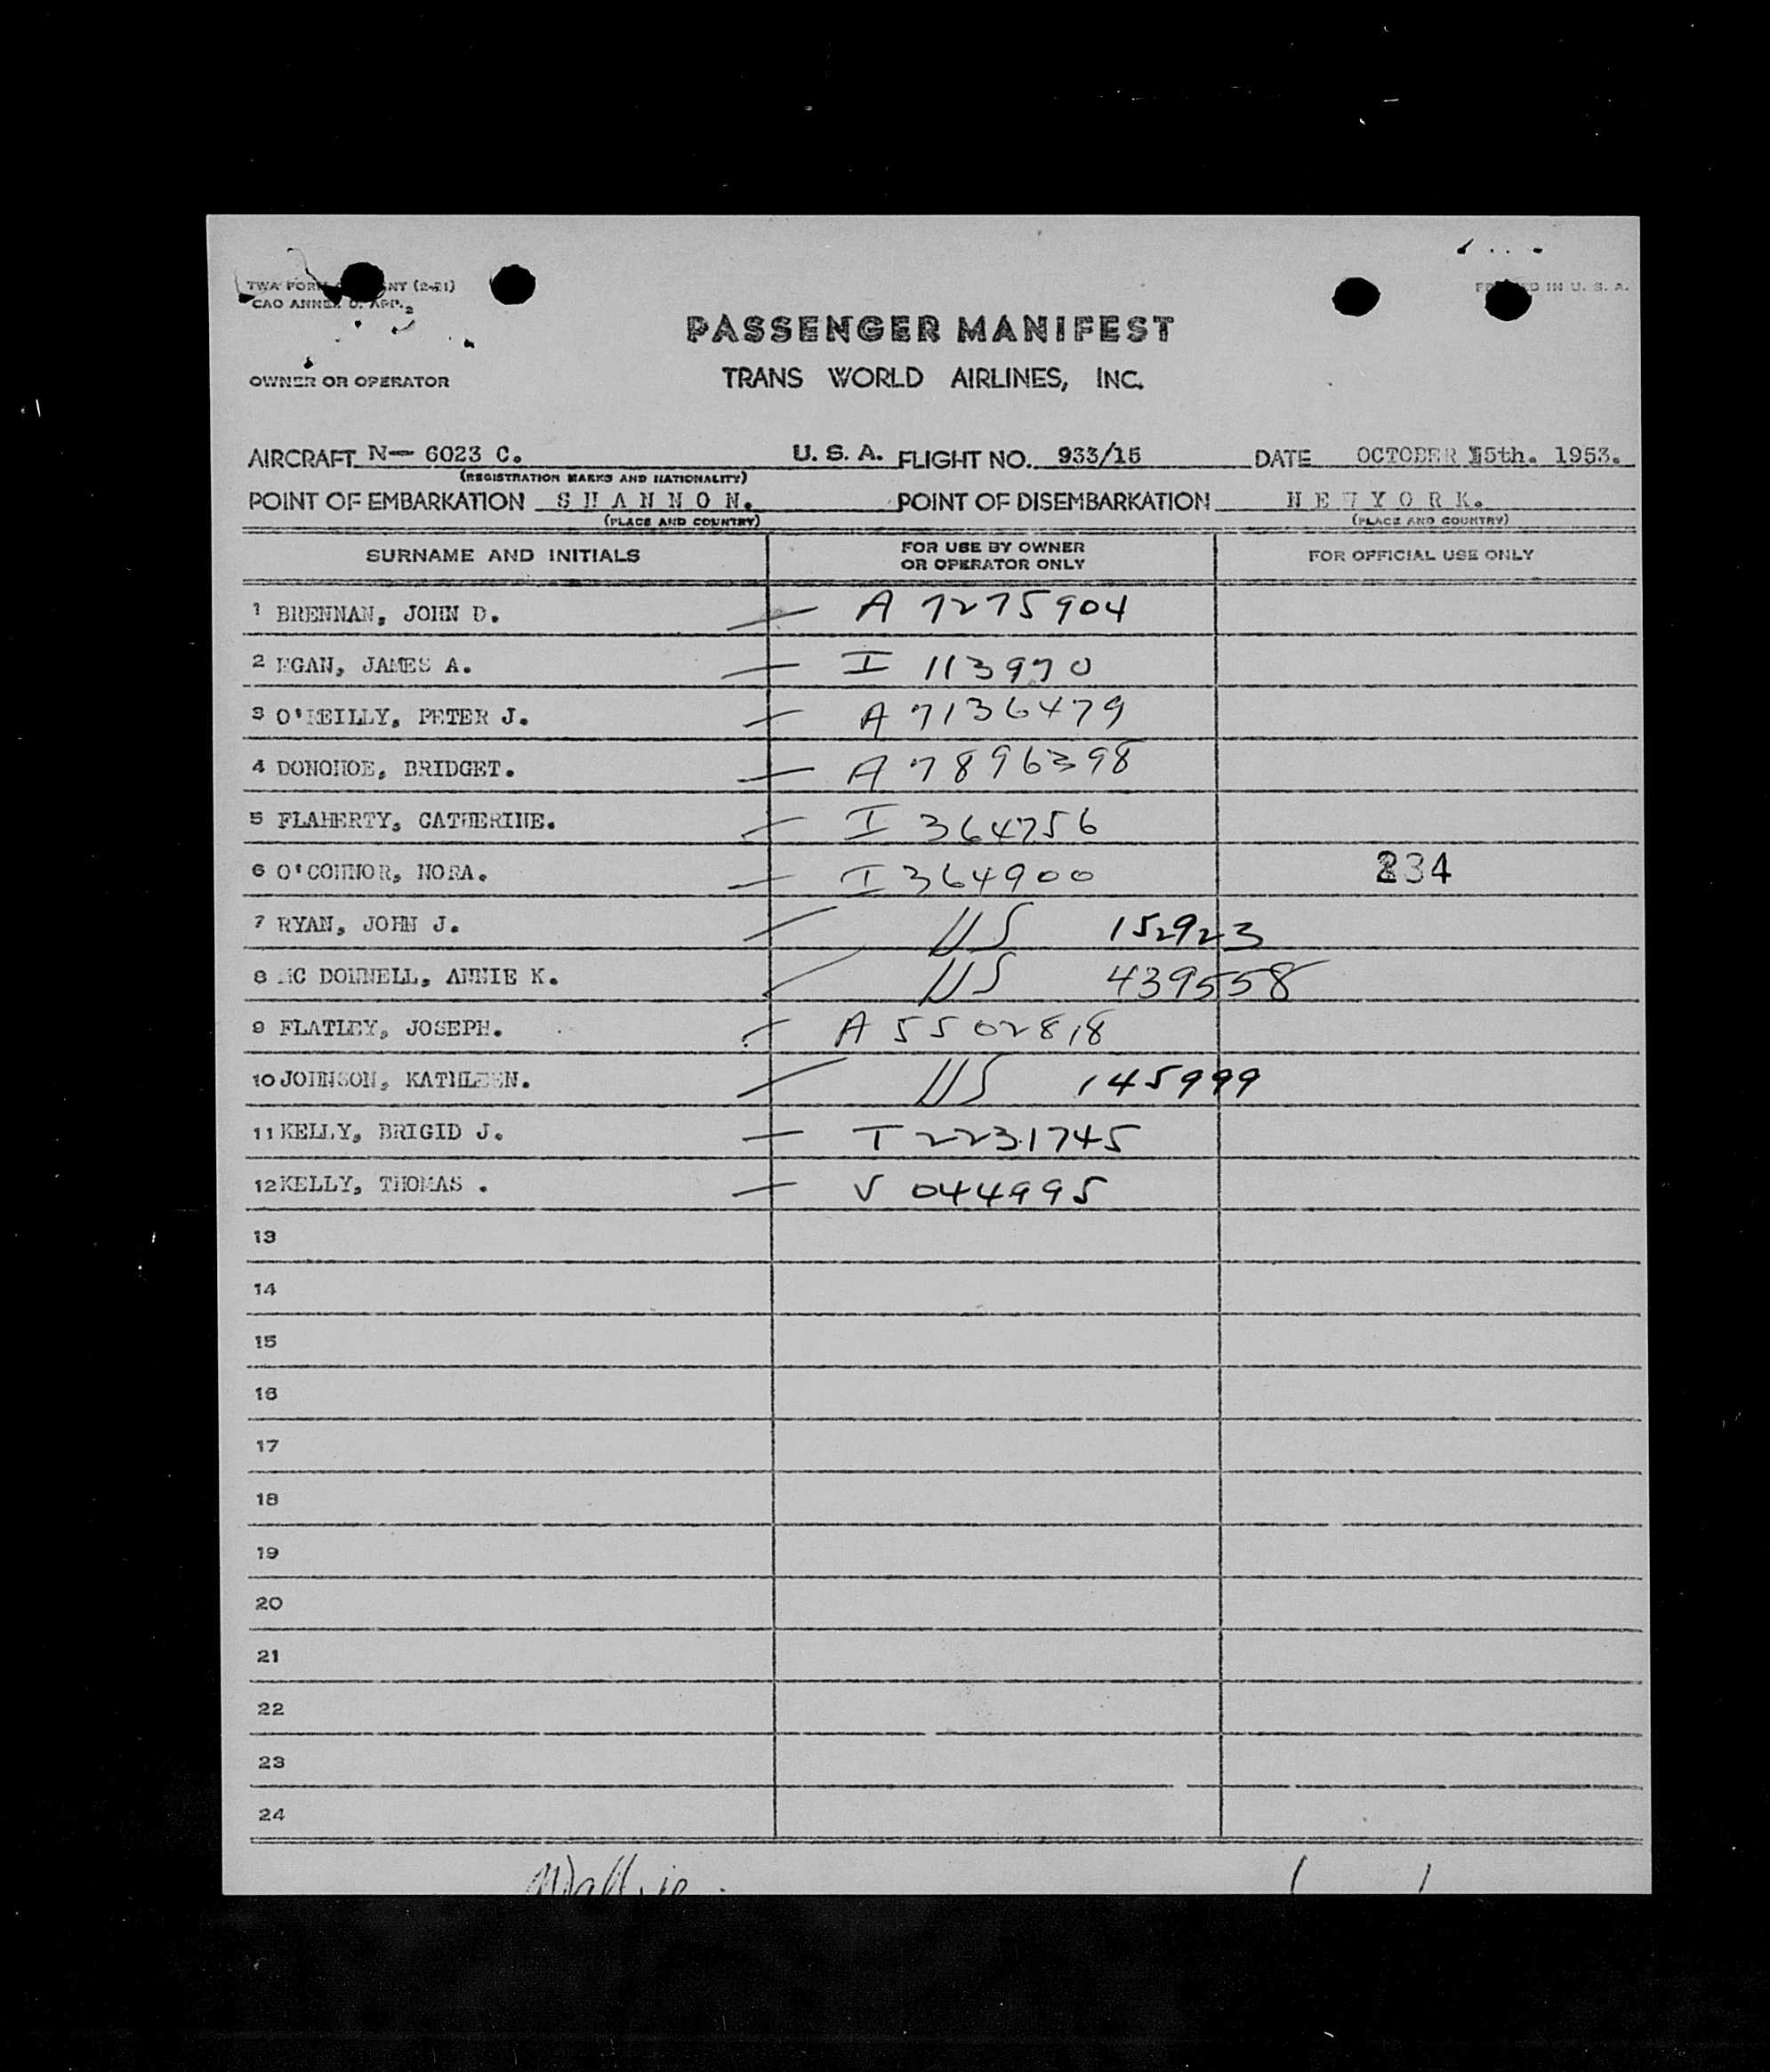 TWA FORM NT (2-51)
CAO ANNEX 9, APP. 2
IN U. S. A.
PASSENGER MANIFEST
OWNER OR OPERATOR TRANS WORLD AIRLINES, INC.
AIRCRAFT N- 6023 C. U. S. A. FLIGHT NO. 933/15 DATE OCTOBER 15th. 1953.
(REGISTRATION MARKS AND NATIONALITY)
POINT OF EMBARKATION S H A N N O N. POINT OF DISEMBARKATION N E W Y O R K.
(PLACE AND COUNTRY) (PLACE AND COUNTRY)
SURNAME AND INITIALS FOR USE BY OWNER OR OPERATOR ONLY FOR OFFICIAL USE ONLY
1 BRENNAN, JOHN D. — A 7275904
2 EGAN, JAMES A. — I 113970
3 O'REILLY, PETER J. — A 7136479
4 DONOHOE, BRIDGET. — A 7896398
5 FLAHERTY, CATHERINE. — I 364756
6 O'CONNOR, NORA. — I 364900 234
7 RYAN, JOHN J. / US 152923
8 MC DONNELL, ANNIE K. / US 439558
9 FLATLEY, JOSEPH. — A 5502818
10 JOHNSON, KATHLEEN. / US 145999
11 KELLY, BRIGID J. — T 2231745
12 KELLY, THOMAS . — V 044995
13
14
15
16
17
18
19
20
21
22
23
24